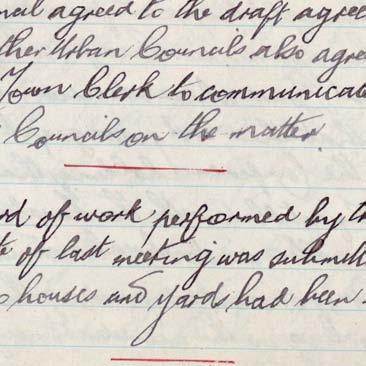 agreed to the draft agree
ther Urban Councils also agre
Town Clerk to communicate
Councils on the matter.
rd of work performed by t
te of last meeting was submit
houses and yards had been